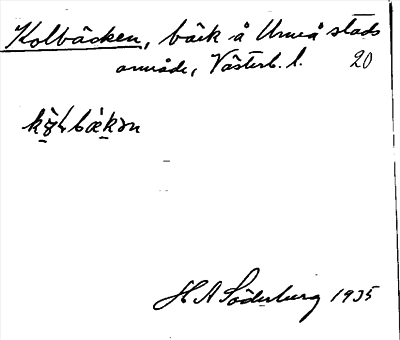 Kolbäcken, bäck å Umeå stads
område, Västerb. l. 20
H A Söderburg 1935